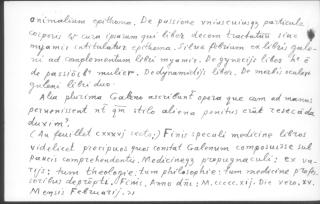 animalium epithoma. De passione vniuscuiusqz particule
corporis & cura ipsarum qui liber decem tractatuū siue
myamir intitulatur epithoma. Silua febrium ex libris gale-
ni ad complementum libri myamir. De gynecijs liber
de passiōibꝰ mulierꝫ. De dynamidijs liber. De methi
galeni libri duo.
Alia plurima Galeno ascribunt opera que cum ad manus
peruenissent stilo aliena penitus resecāda
duximꝰ.
(Au feuillet cxxxvj recto;) Finis speculi medicine libros
videlicet precipuos quos constat Galenum composuisse sub
paucis comprehendentis. Medicineqz propugnaculi: ex va-
rijs: tum theologie: tum philosophie: tum medicine profes-
soribus deprōpti. Finis. Anno dñi; M.cccc.xij. Die vero.xv.
Mensis Februarij. »